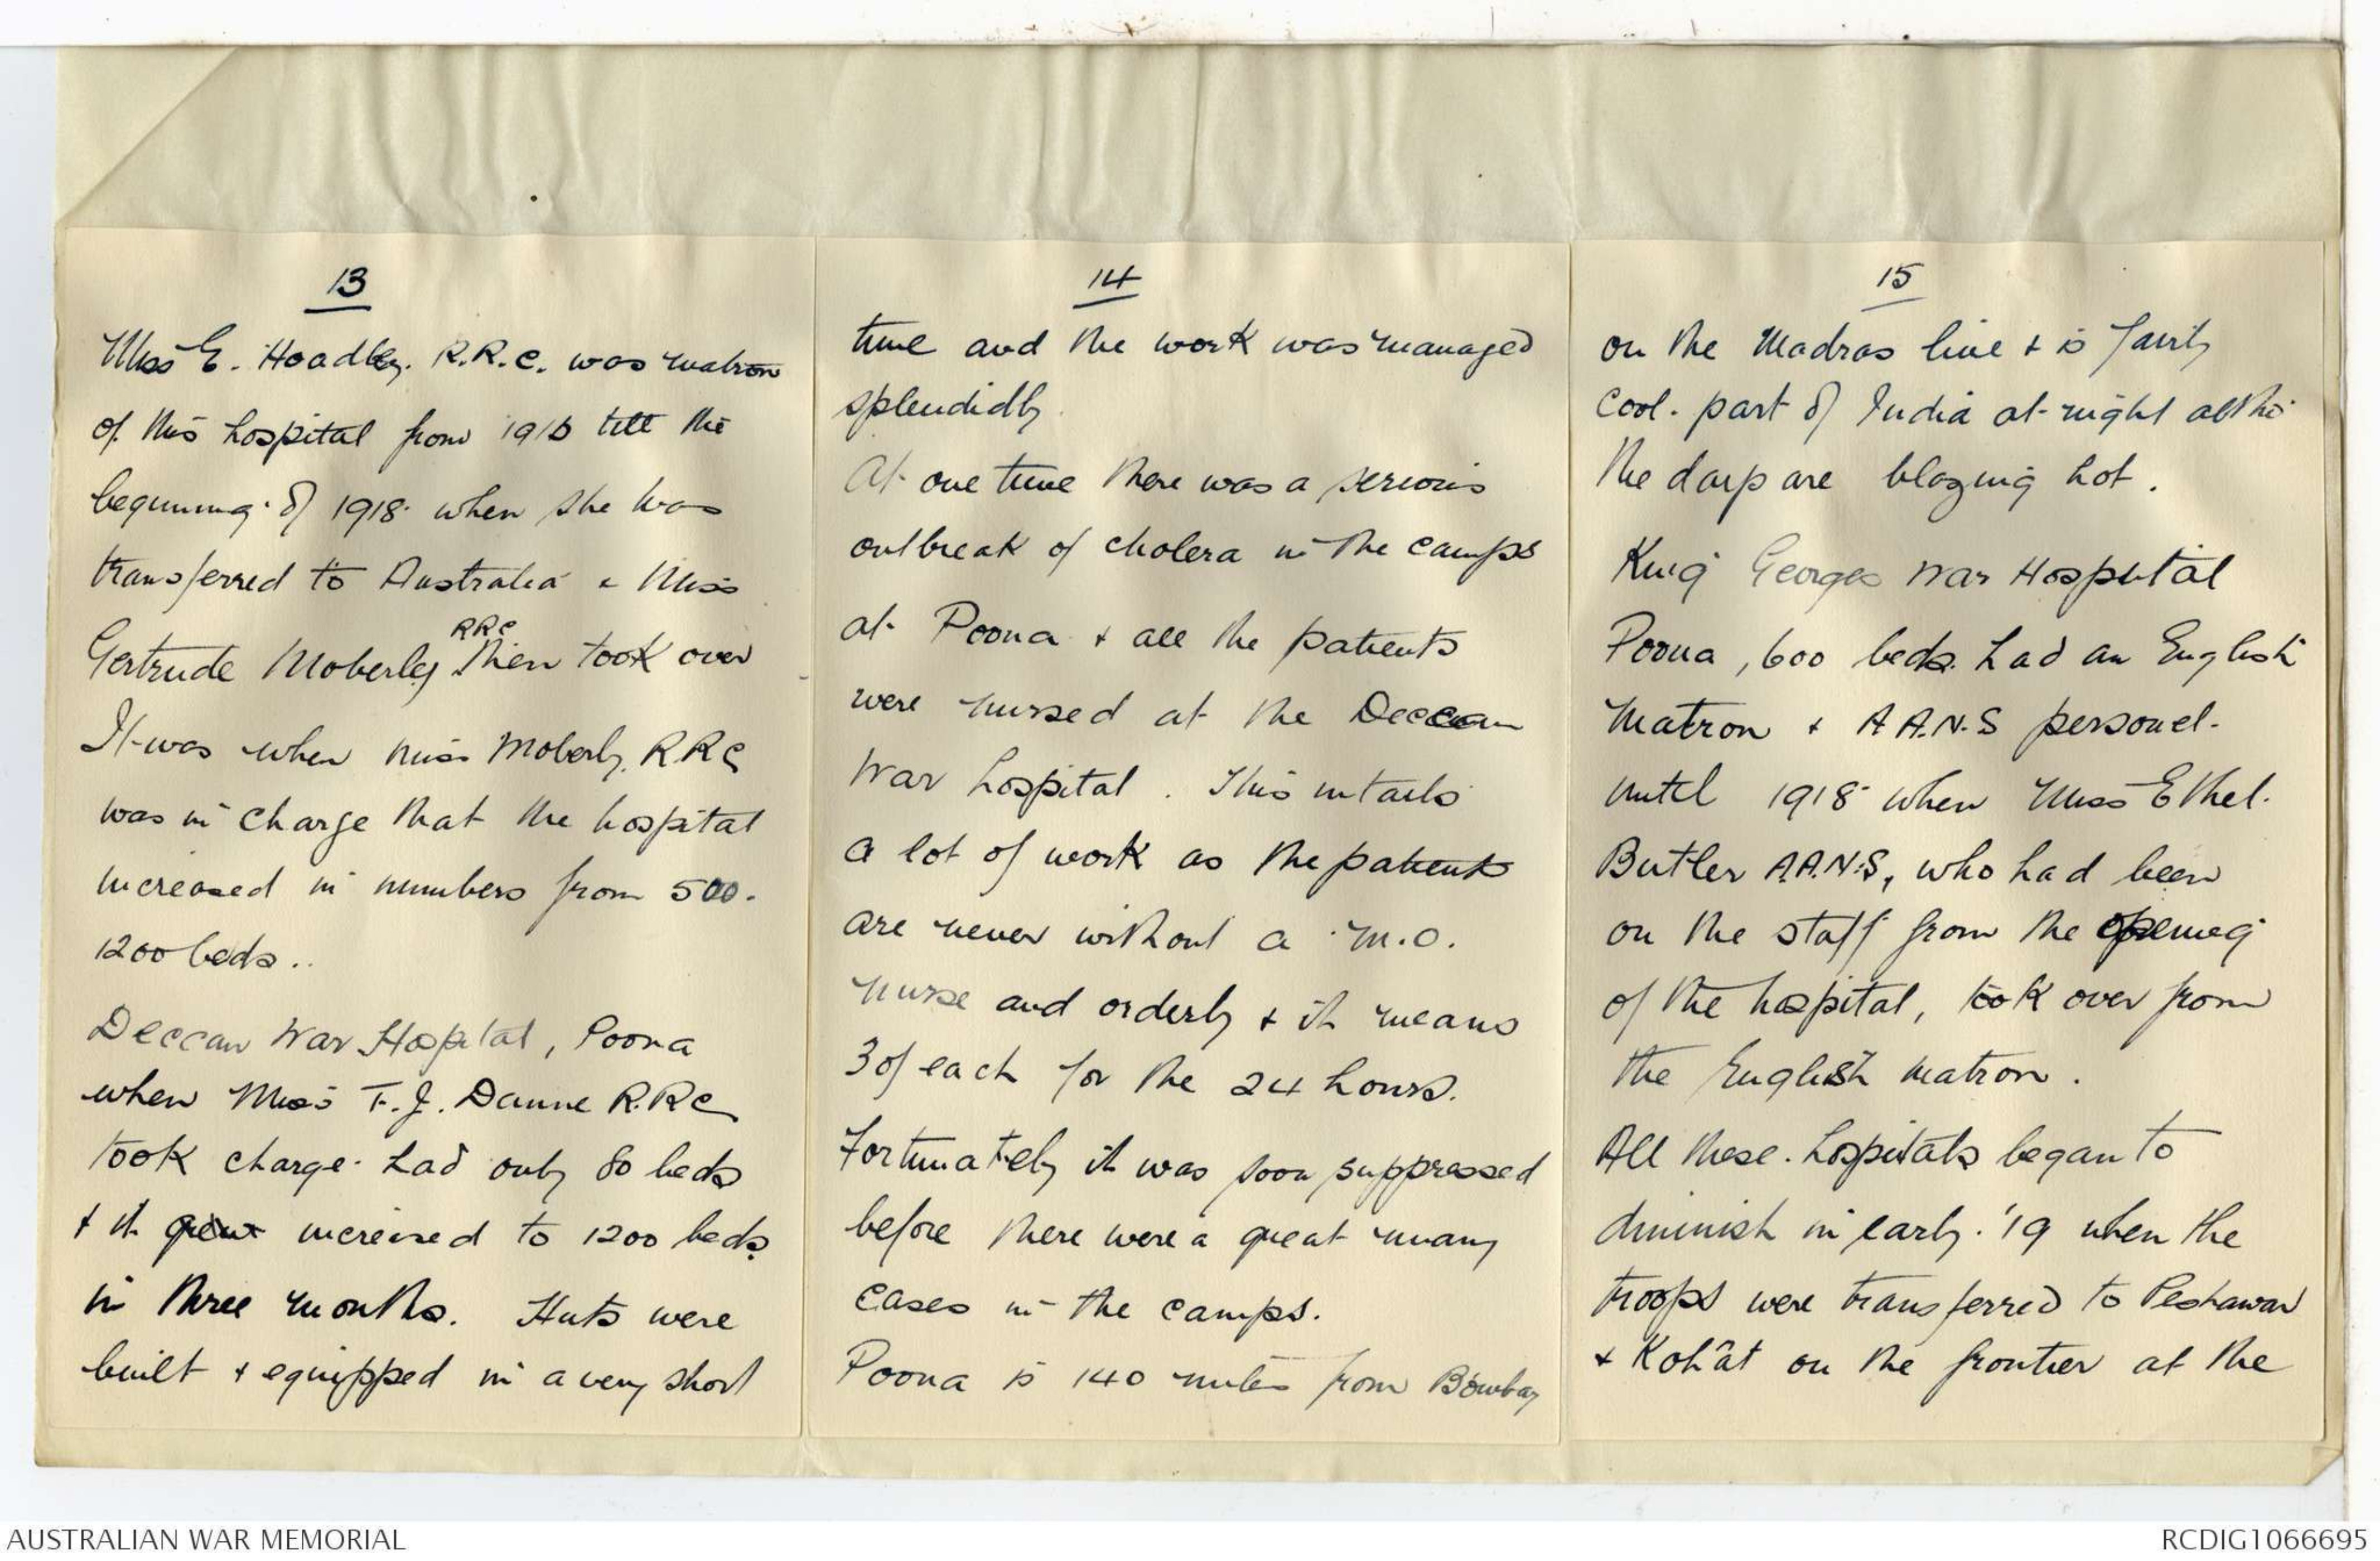 13
Miss E. Hoadley. R.R.C. was matron
of this hospital from 1916 till the
beginning of 1918 when she was
transferred to Australia & Miss
Gertrude Moberley RRC then took over
It was when Miss Moberly, R.R.C
was in charge that the hospital
increased in numbers from 500-
1200 beds..
Deccan War Hospital, Poona
when Miss F. J. Daune R.R.C
took charge had only 80 beds
& it grew increased to 1200 beds
in three months. Huts were
built & equipped in a very short
14
time and the work was managed
splendidly.
At one time there was a serious
outbreak of cholera in the camps
at Poona & all the patients
were nursed at the Deccan
War hospital. This intails
a lot of work as the patients
are never without a M.O.
nurse and orderly & it means
3 of each for the 24 hours.
Fortunately it was soon suppressed
before there were a great many
cases in the camps.
Poona is 140 miles from Bombay
15
on the Madras line & is fairly
cool. part of India at night altho'
the days are blazing hot.
King Georges War Hospital
Poona, 600 beds. had an English
Matron & A.A.N.S personel.
until 1918 when Miss Ethel.
Butler A.A.N.S, who had been
on the staff from the opening
of the hospital, took over from
the English matron.
All these hospitals began to
diminish in early '19 when the
troops were transferred to Peshawar
& Kohât on the frontier at the
AUSTRALIAN WAR MEMORIAL
RCDIG1066695